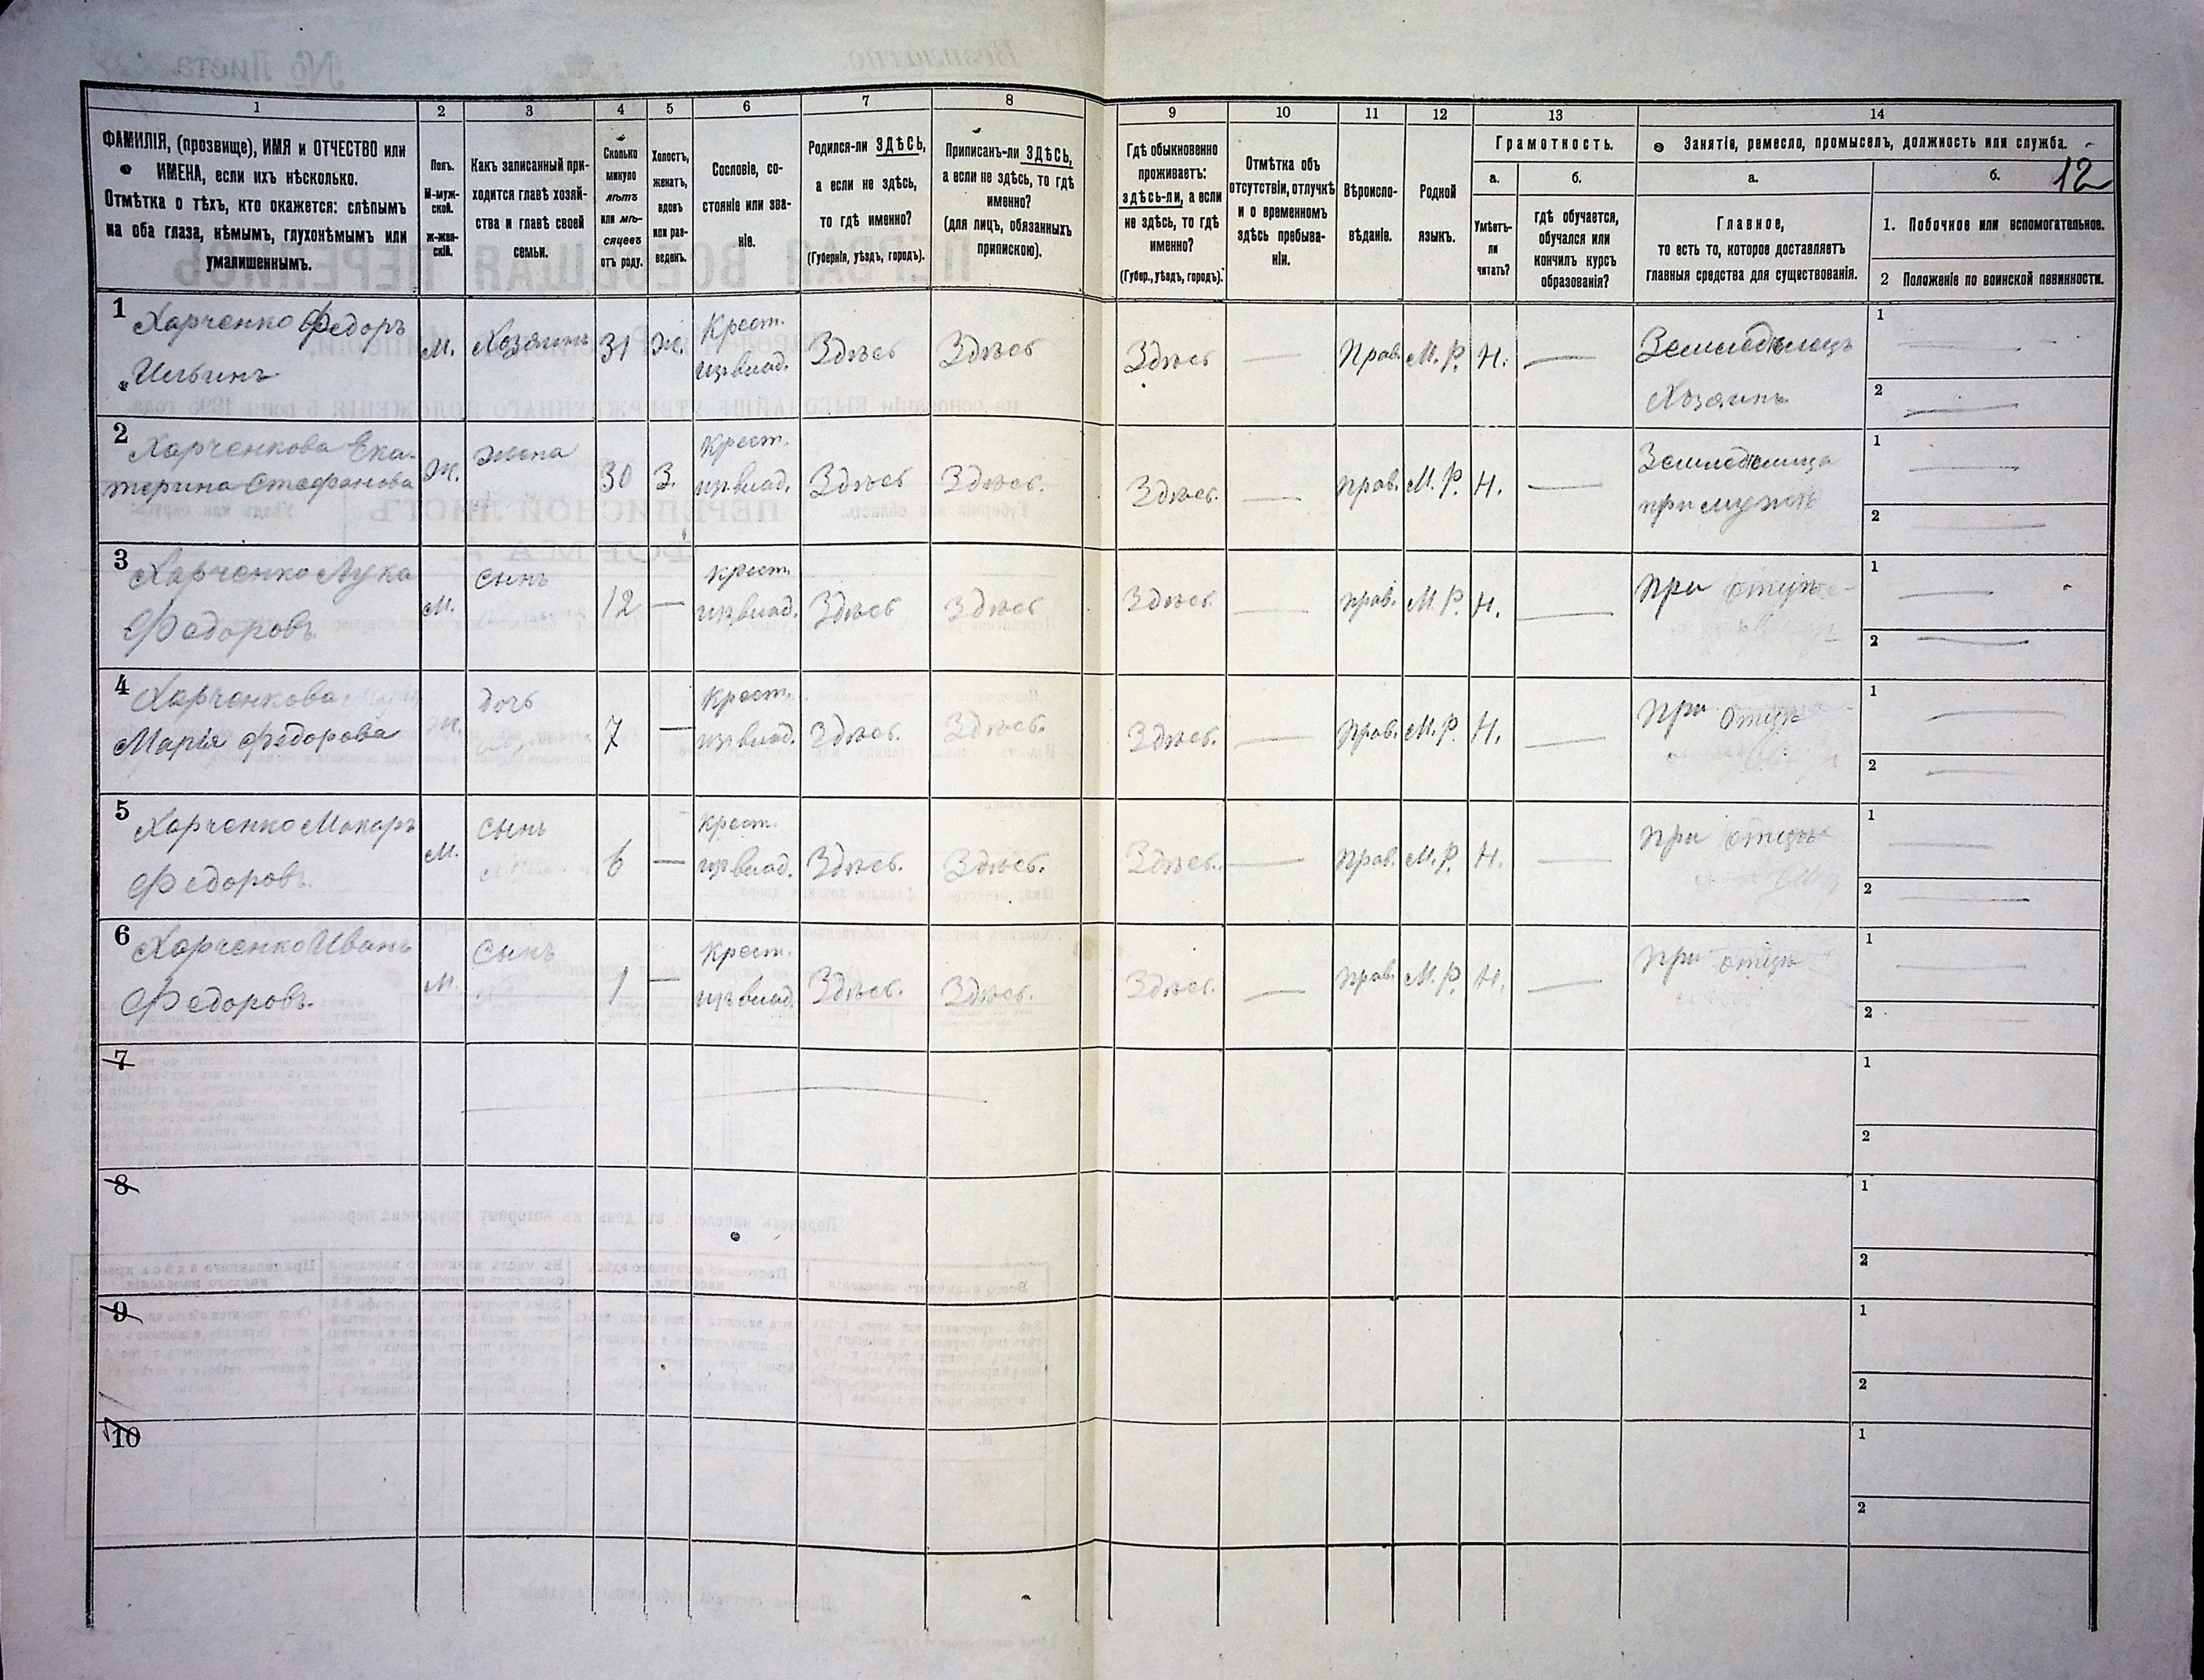 1 2 3 4 5 6 7 8 9 10 11 12 13 14
ФАМИЛІЯ, (прозвище), ИМЯ и ОТЧЕСТВО или
ИМЕНА, если ихъ нѣсколько.
Отмѣтка о тѣхъ, кто окажется: слѣпымъ
на оба глаза, нѣмымъ, глухонѣмымъ или
умалишеннымъ.
Полъ.
М-муж-
ской.
Ж-жен-
скій.
Какъ записанный при-
ходится главѣ хозяй-
ства и главѣ своей
семьи.
Сколько
минуло
лѣтъ
или мѣ-
сяцевъ
отъ роду.
Холостъ,
женатъ,
вдовъ
или раз-
веденъ.
Сословіе, со-
стояніе или зва-
ніе.
Родился-ли ЗДѢСЬ,
а если не здѣсь,
то гдѣ именно?
(Губернія, уѣздъ, городъ).
Приписанъ-ли ЗДѢСЬ,
а если не здѣсь, то гдѣ
именно?
(для лицъ, обязанныхъ
припискою).
Гдѣ обыкновенно
проживаетъ:
здѣсь-ли, а если
не здѣсь, то гдѣ
именно?
(Губер., уѣздъ, городъ).
Отмѣтка объ
отсутствіи, отлучкѣ
и о временномъ
здѣсь пребыва-
ніи.
Вѣроиспо-
вѣданіе.
Родной
языкъ.
Грамотность.
а.
Умѣетъ-
ли
читать?
б.
гдѣ обучается,
обучался или
кончилъ курсъ
образованія?
Занятіе, ремесло, промыселъ, должность или служба.
а.
Главное,
то есть то, которое доставляетъ
главныя средства для существованія.
б.
12
1. Побочное или вспомогательное.
2 Положеніе по воинской повинности.
1 Харченко Федоръ
Ильинъ
М. Хозяинъ 31 Ж. Крест.
из.влад. Здѣсь Здѣсь Здѣсь — Прав. М.Р. Н. — Земледѣлецъ
Хозяинъ
1 —
2 —
2 Харченкова Ека-
терина Стефанова
Ж. жена 30 З. Крест.
из.влад. Здѣсь Здѣсь. Здѣсь. — прав. М.Р. Н. — Земледѣлица
при мужѣ
1 —
2 —
3 Харченко Лука
Федоровъ
М. сынъ 12 — крест.
из.влад. Здѣсь Здѣсь Здѣсь. — прав. М.Р. Н. — при отцѣ
1 —
2 —
4 Харченкова
Марія Федорова
Ж. дочь 7 — крест.
из.влад. Здѣсь. Здѣсь. Здѣсь. — Прав. М.Р. Н. — при отцѣ
1 —
2 —
5 Харченко Макаръ
Федоровъ.
М. сынъ 6 — крест.
из.влад. Здѣсь. Здѣсь. Здѣсь. — прав. М.Р. Н. — при отцѣ
1 —
2 —
6 Харченко Иванъ
Федоровъ.
М. сынъ 1 — Крест.
из.влад. Здѣсь. Здѣсь. Здѣсь. — прав. М.Р. Н. — при отцѣ
1 —
2
7
1
2
8
1
2
9
1
2
10
1
2